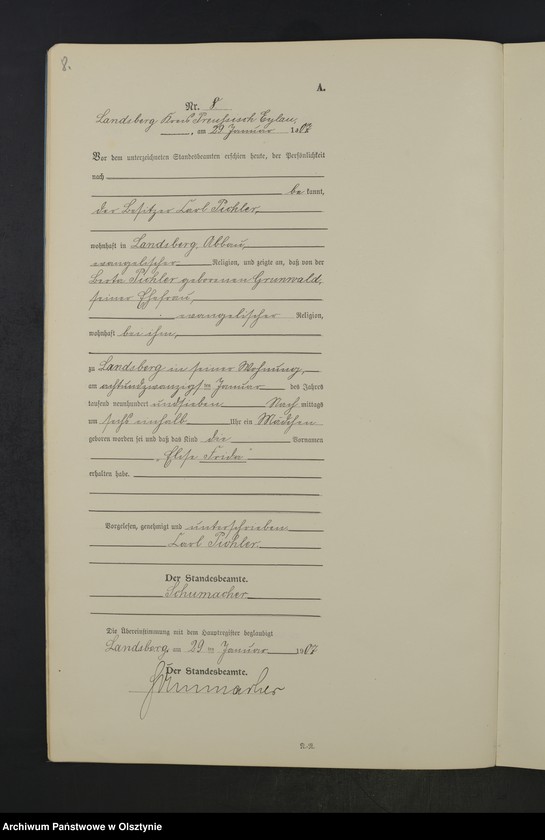 8.
A.
Nr. 8
Landsberg Kreis Preussisch Eylau,
, am 29 Januar 1907
Vor dem unterzeichneten Standesbeamten erschien heute, der Persönlichkeit
nach
be kannt,
der Besitzer Carl Pichler,
wohnhaft in Landsberg, Abbau,
evangelischer Religion, und zeigte an, daß von der
Berta Pichler geborenen Grunwald,
seiner Ehefrau,
evangelischer Religion,
wohnhaft bei ihm,
zu Landsberg in seiner Wohnung,
am achtundzwanzigsten Januar des Jahres
tausend neunhundert und sieben Nach mittags
um sechs einhalb Uhr ein Mädchen
geboren worden sei und daß das Kind die Vornamen
„Elise Frida"
erhalten habe.
Vorgelesen, genehmigt und unterschrieben
Carl Pichler
Der Standesbeamte.
Schumacher
Die Übereinstimmung mit dem Hauptregister beglaubigt
Landsberg, am 29 ten Januar 1907
Der Standesbeamte.
Schumacher
Archiwum Państwowe w Olsztynie